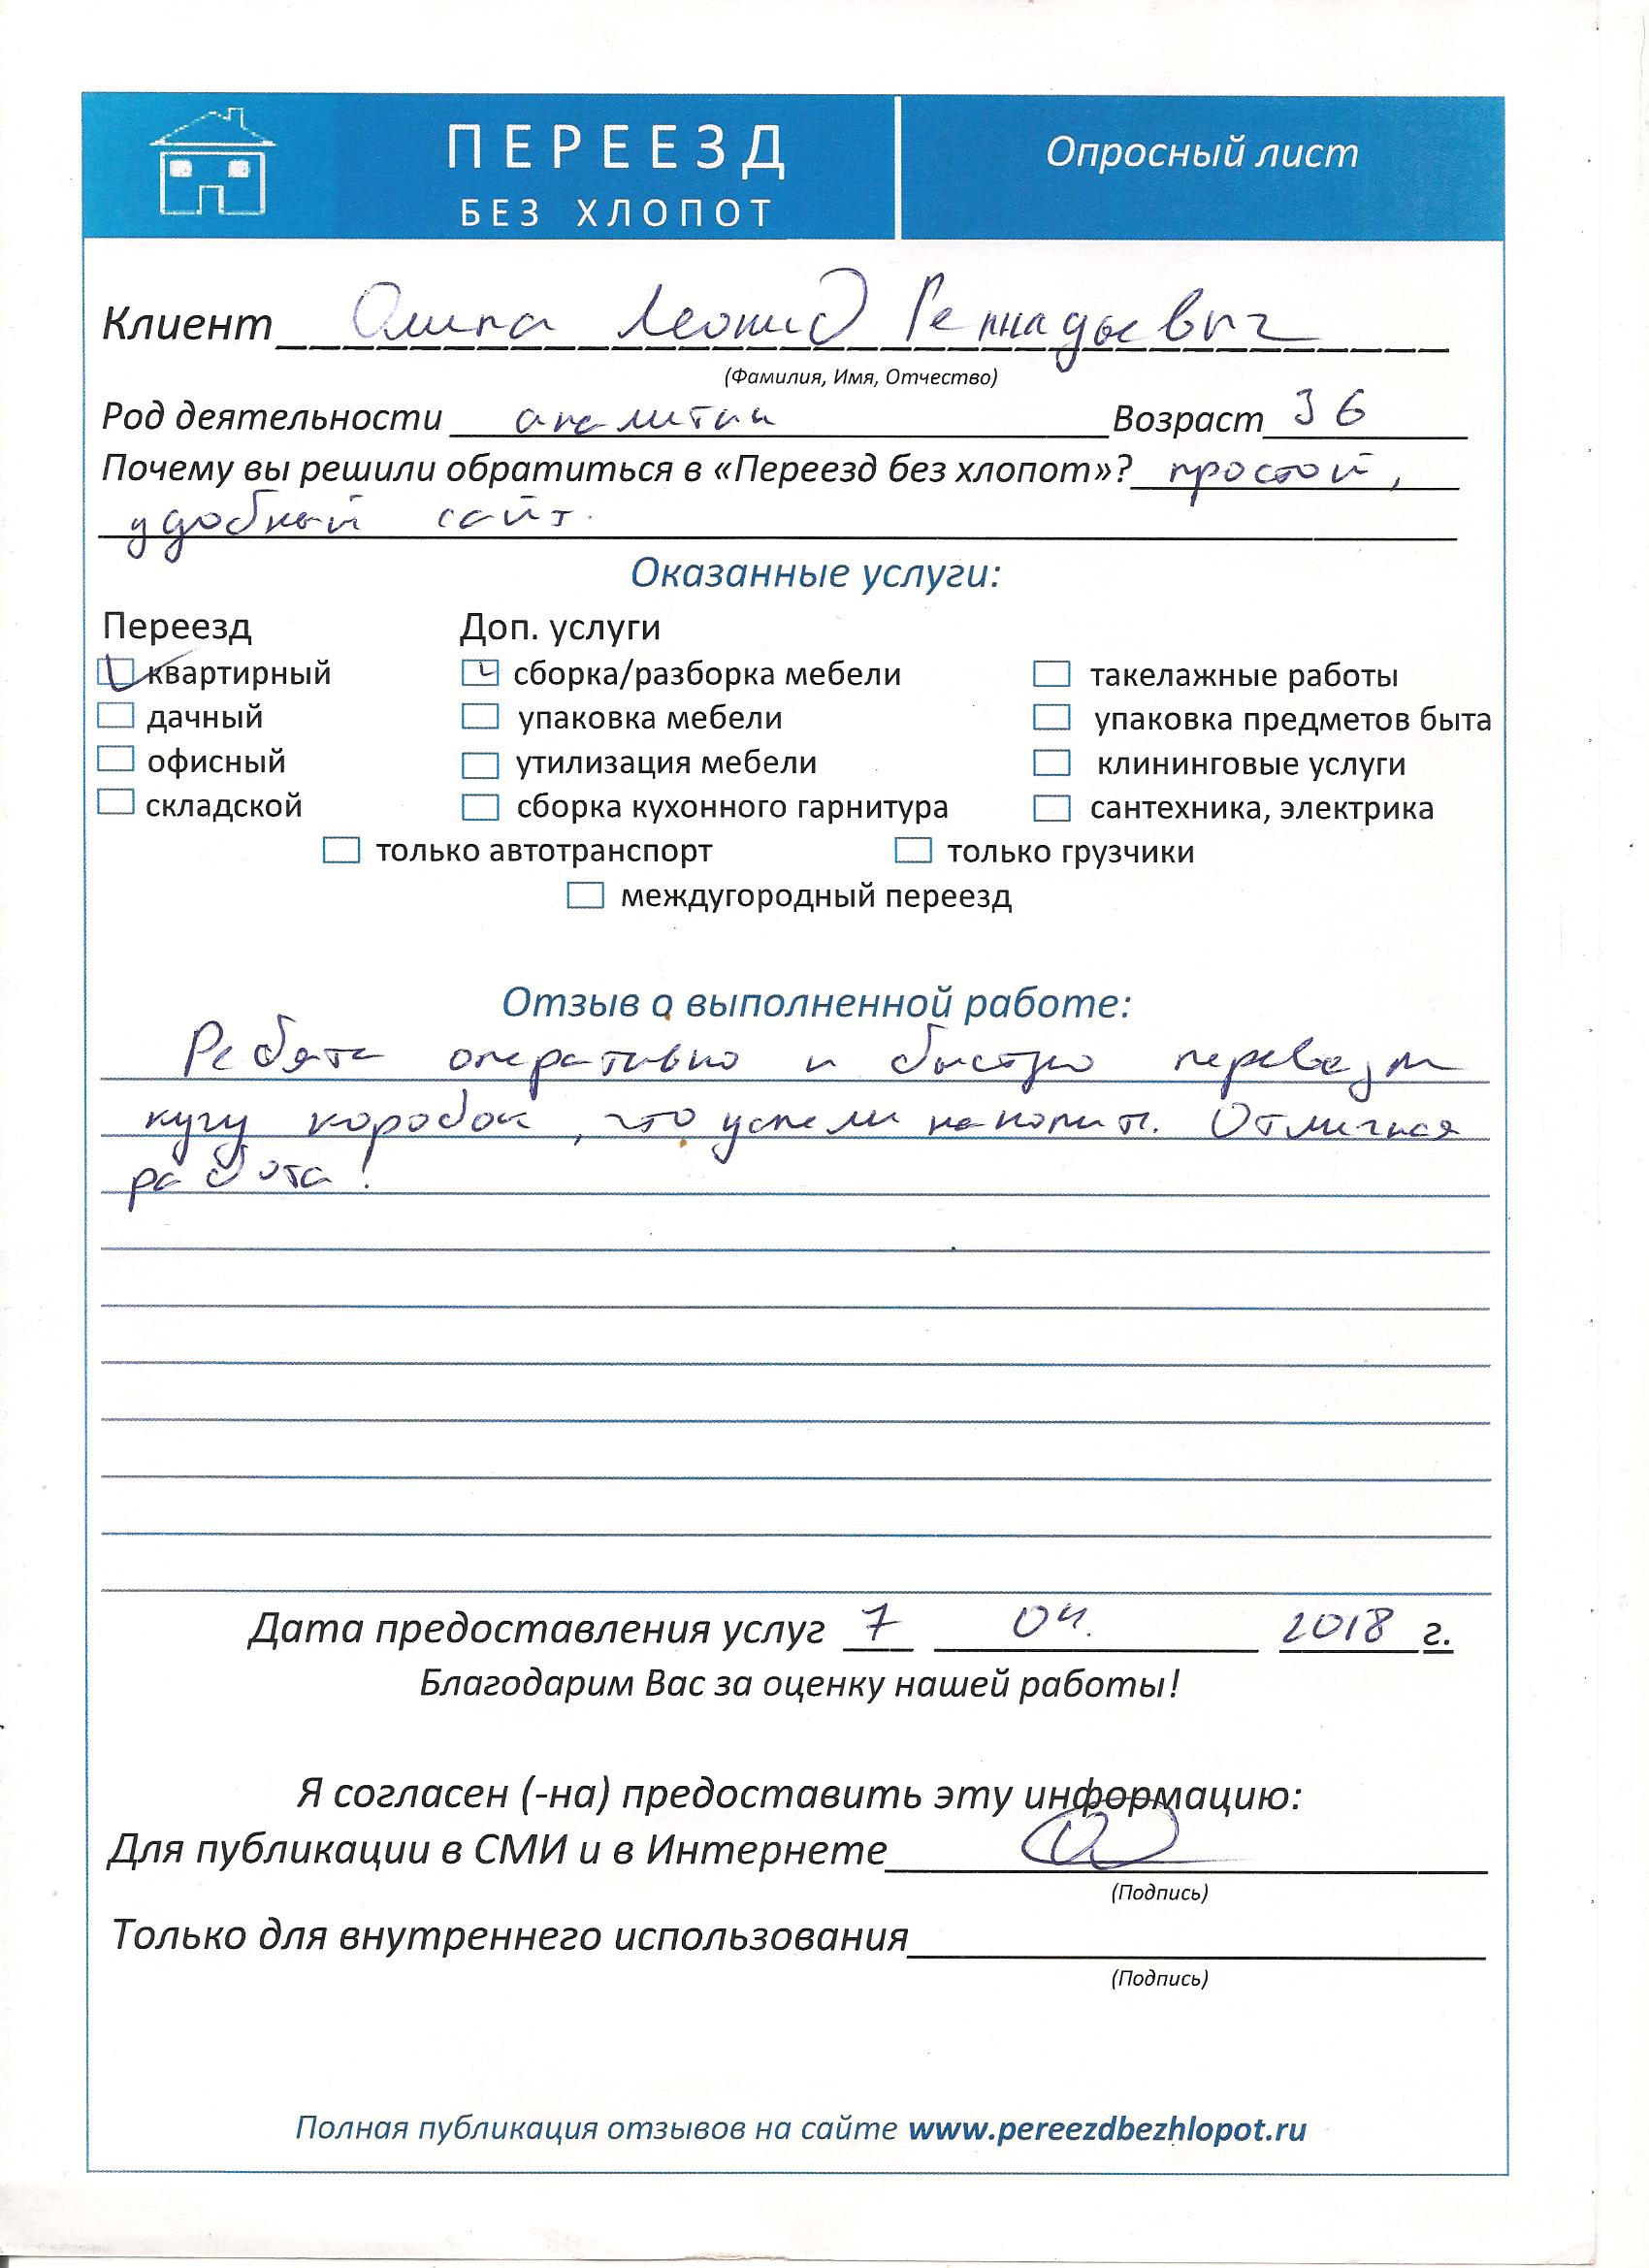 ПЕРЕЕЗД
БЕЗ ХЛОПОТ
Опросный лист
Клиент Леонид Геннадьевич
(Фамилия, Имя, Отчество)
Род деятельности аналитик Возраст 36
Почему вы решили обратиться в «Переезд без хлопот»? простой,
удобный сайт.
Оказанные услуги:
Переезд Доп. услуги
квартирный сборка/разборка мебели такелажные работы
дачный упаковка мебели упаковка предметов быта
офисный утилизация мебели клининговые услуги
складской сборка кухонного гарнитура сантехника, электрика
только автотранспорт только грузчики
междугородный переезд
Отзыв о выполненной работе:
Ребята оперативно и быстро перевезли
кучу коробок, что успели накопить. Отличная
работа!
Дата предоставления услуг 7 04. 2018 г.
Благодарим Вас за оценку нашей работы!
Я согласен (-на) предоставить эту информацию:
Для публикации в СМИ и в Интернете
(Подпись)
Только для внутреннего использования
(Подпись)
Полная публикация отзывов на сайте www.pereezdbezhlopot.ru